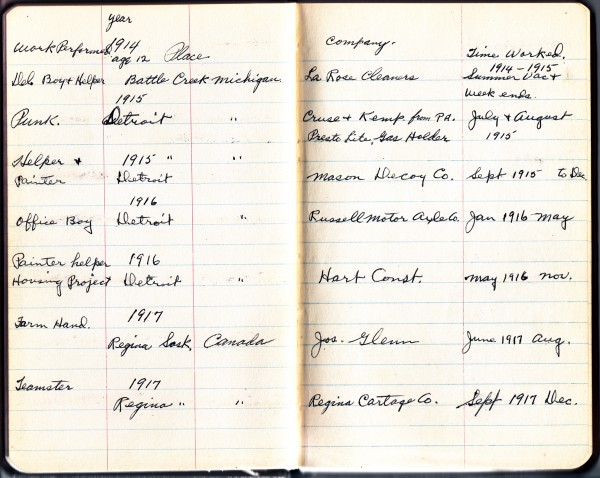 year
Work Performed 1914 Place Company. Time Worked.
age 12 1914 - 1915
Del. Boy & Helper Battle Creek Michigan. La Rose Cleaners Summer Vac &
week ends.
1915
Punk. Detroit " Cruse & Kemp from Pa. July & August
Presto Lite, Gas Holder 1915
Helper & 1915 " "
Painter Detroit Mason Decoy Co. Sept 1915 to Dec
1916
Office Boy Detroit " Russell Motor Axle Co. Jan 1916 May
Painter helper 1916
Housing Project Detroit " Hart Const. May 1916 Nov.
Farm Hand. 1917
Regina Sask. Canada Jos. Glenn June 1917 Aug.
Teamster 1917
Regina " " Regina Cartage Co. Sept 1917 Dec.